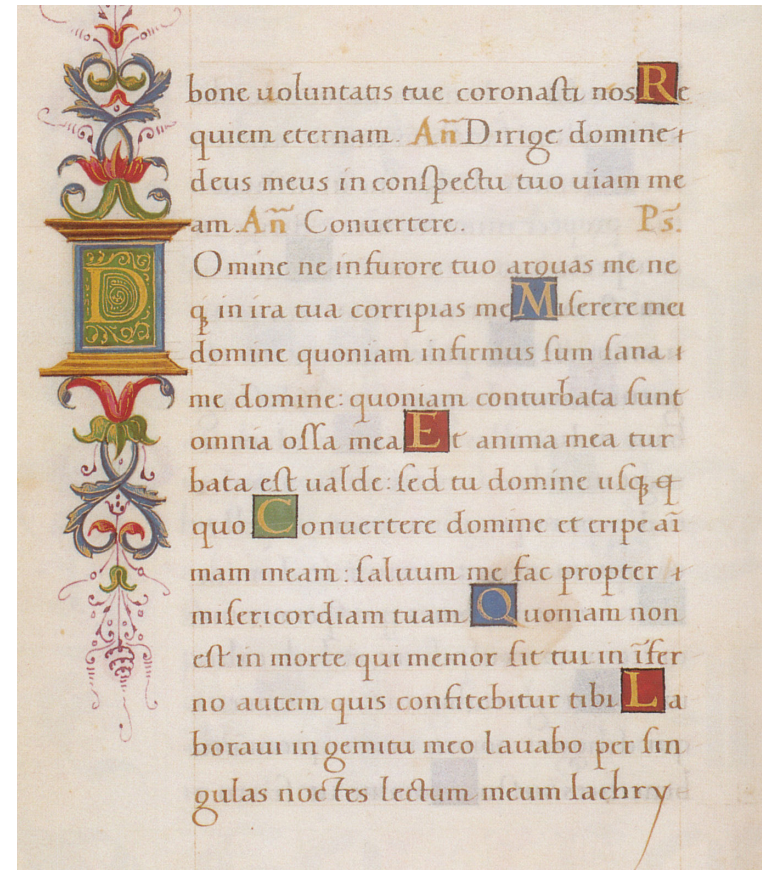 bone uoluntatis tue coronasti nos Re
quiem eternam. Añ Dirige domine
deus meus in conspectu tuo uiam me
am. Añ Conuertere. Ps̃.
DOmine ne in furore tuo arguas me ne
q̃ in ira tua corripias me Miserere mei
domine quoniam infirmus sum sana
me domine: quoniam conturbata sunt
omnia ossa mea Et anima mea tur
bata est ualde: sed tu domine usqꝫ q
quo Conuertere domine et eripe aĩ
mam meam: saluum me fac propter
misericordiam tuam Quoniam non
est in morte qui memor sit tui in ĩfer
no autem quis confitebitur tibi La
boraui in gemitu meo lauabo per sin
gulas noctes lectum meum lachry